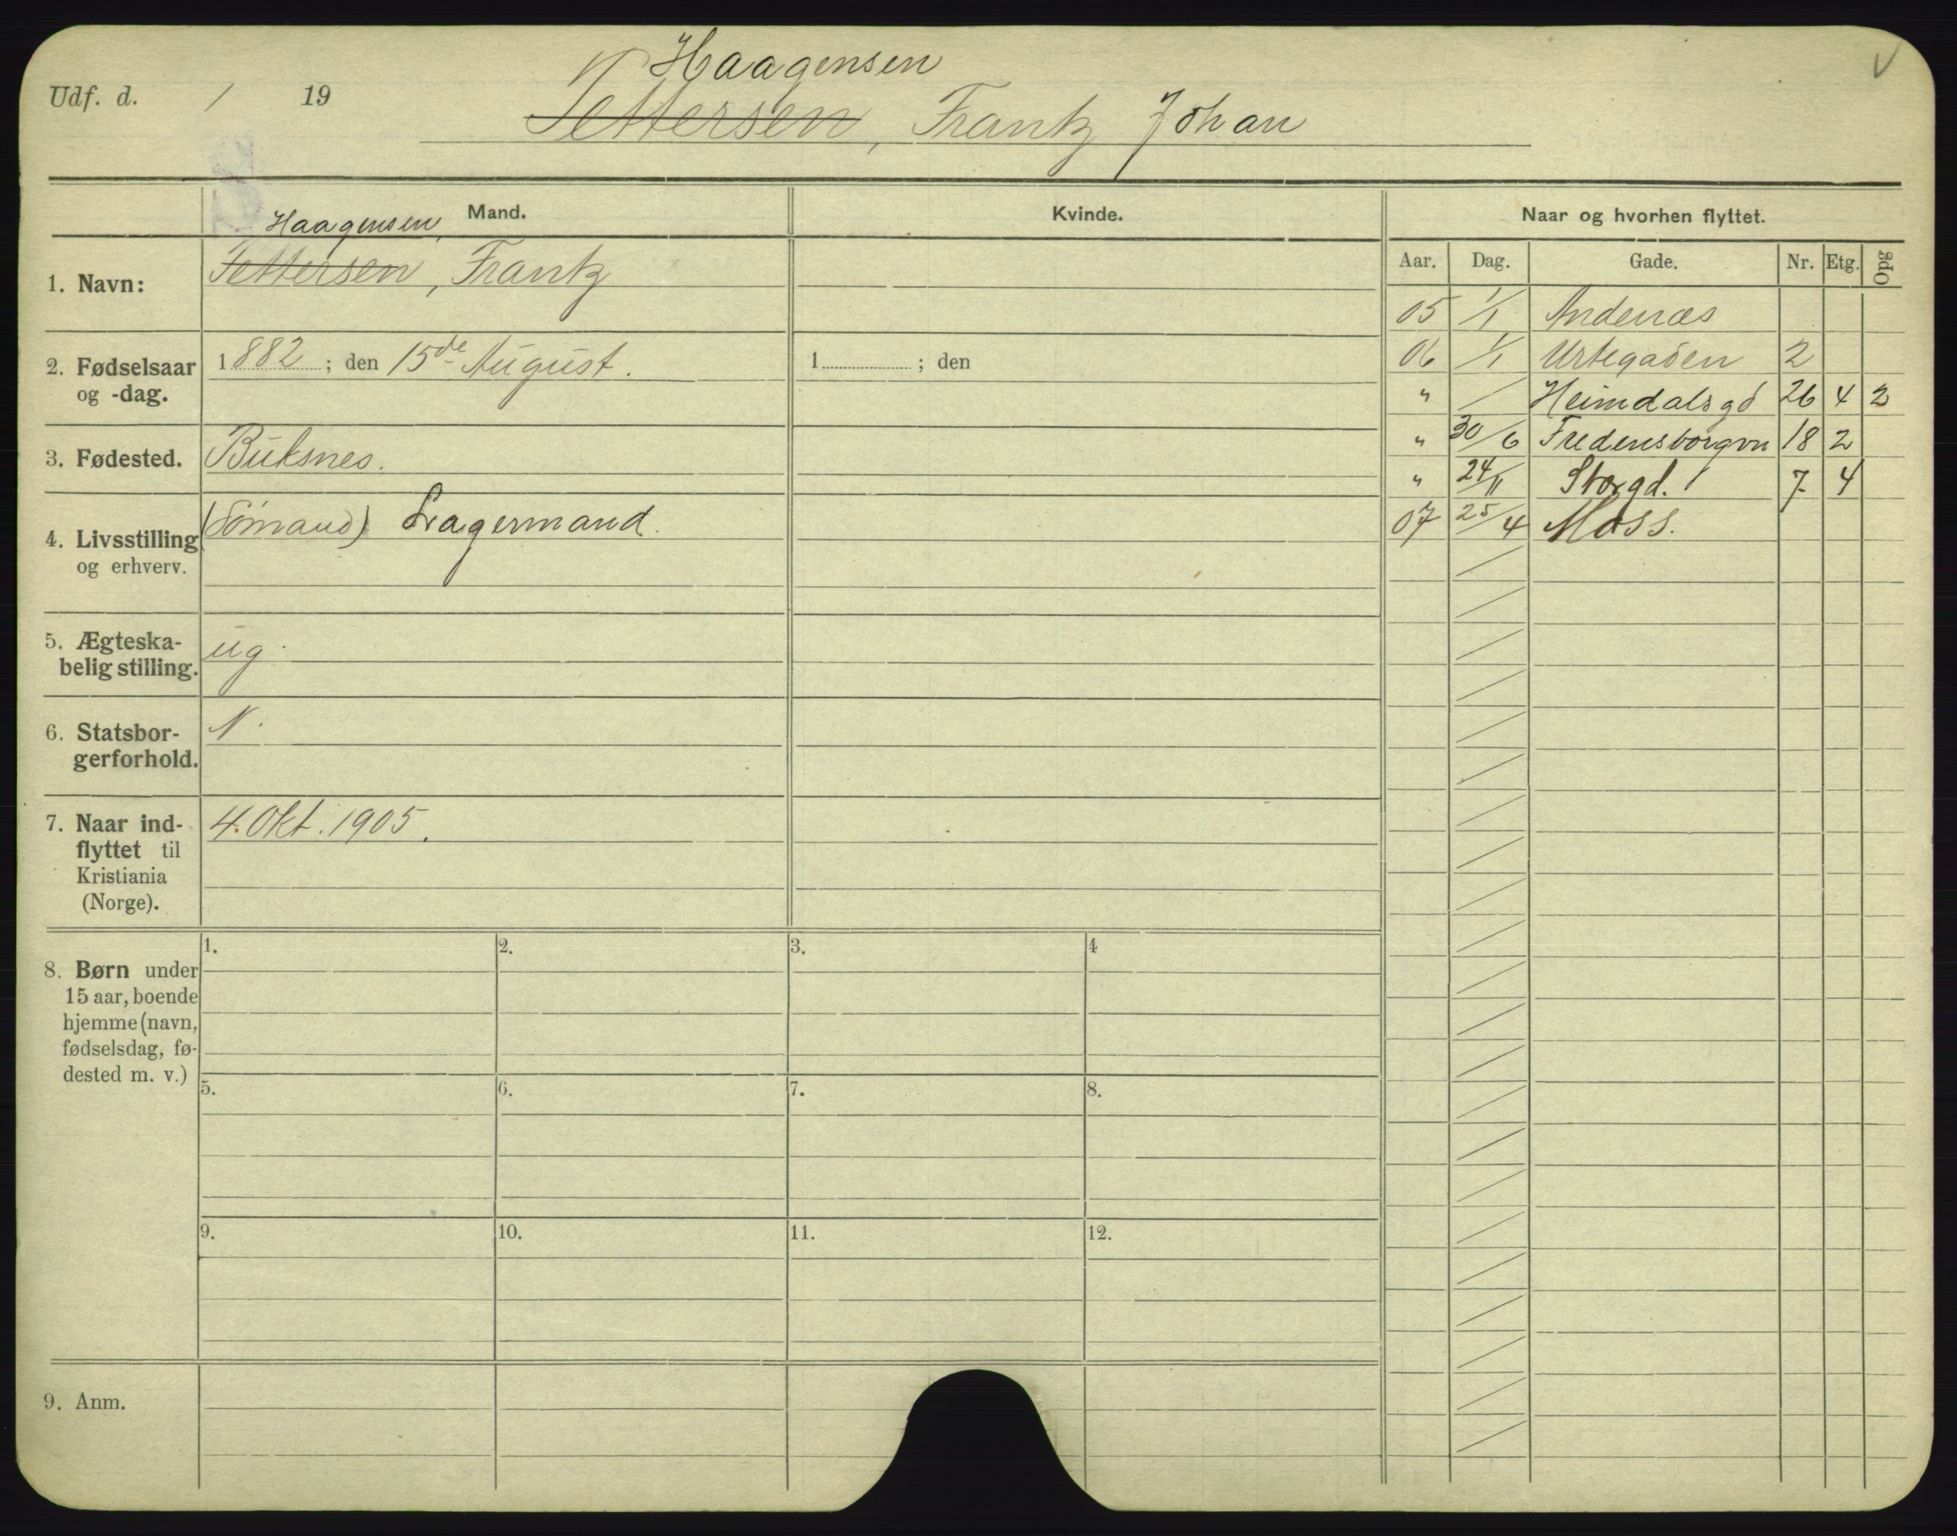 Haagensen
Udf. d. / 19
Pettersen, Frantz Johan
Mand.
Kvinde.
Naar og hvorhen flyttet.
Aar. Dag. Gade. Nr. Etg. Opg
Haagensen,
1. Navn: Pettersen, Frantz
2. Fødselsaar og -dag. 1882; den 15de August.
1 ; den
3. Fødested. Buksnes.
4. Livsstilling og erhverv. (Sømand) Lagermand.
5. Ægteska-
belig stilling. ug.
6. Statsbor-
gerforhold. N.
7. Naar ind-
flyttet til
Kristiania
(Norge). 4. Okt. 1905.
05 1/1 Andenæs
06 1/1 Urtegaden 2
" / Heimdalsgd 26 4 2
" 30/6 Fredensborgvn 18 2
" 24/11 Storgd. 7 4
07 25/4 Moss.
8. Børn under
15 aar, boende
hjemme (navn,
fødselsdag, fø-
dested m. v.)
1. 2. 3. 4
5. 6. 7. 8.
9. 10. 11. 12.
9. Anm.